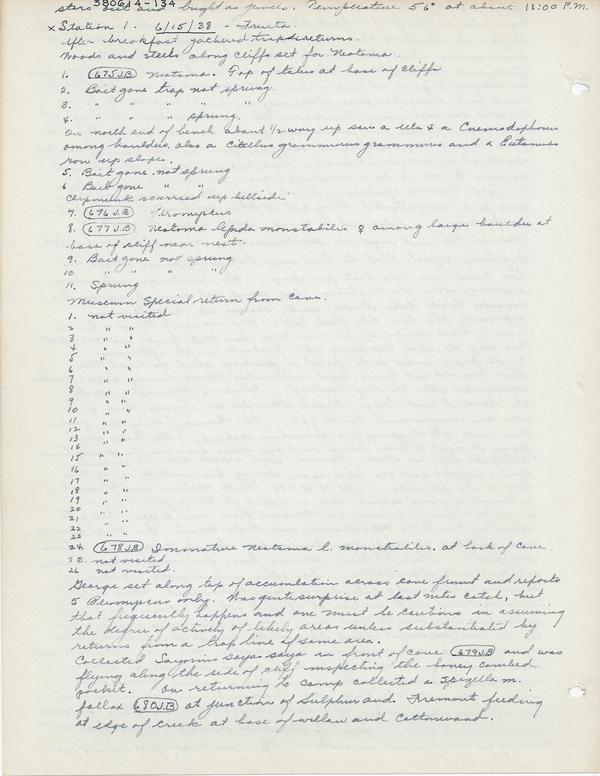 stars out and bright as jewels. Temperature 56° at about 11:00 P.M.
380614-134
x Station 1. 6/15/38 - Fruita.
After breakfast gathered traps & returns.
Woods and steels along cliffs set for Neotoma.
1. (675 J.B) Neotoma. Top of talus at base of cliffs
2. Bait gone trap not sprung.
3. " " " " "
4. " " " sprung.
On north end of bench about 1/2 way up saw a Uta & a Cnemodophorus
among boulders, also a Citellus grammurus grammurus and a Eutamias
row up slope.
5. Bait gone not sprung
6 Bait gone " "
Chipmunk scurried up hillside.
7. (676 J.B) Peromyscus
8. (677 J.B) Neotoma lepida monstabilis & among large boulder at
base of cliff near nest.
9. Bait gone not sprung
10 " " " "
11. Sprung
Museum Special return from Cave.
1. not visited
2 " "
3 " "
4 " "
5 " "
6 " "
7 " "
8 " "
9 " "
10 " "
11 " "
12 " "
13 " "
14 " "
15 " "
16 " "
17 " "
18 " "
19 " "
20 " "
21 " "
22 " "
23 " "
24. (678 J.B) Immature Neotoma l. monstabilis. at back of Cave.
25. not visited
26 not visited.
George set along top of accumlation across cove front and reports
5 Peromyscus only. Was quite surprise at last nites catch, but
that frequently happens and one must be cautions in assuming
the degree of activity of likely areas unless substantiated by
returns from a trap line of same area.
Collected Sayornis saya saya in front of cave (679 J.B) and was
flying along the side of cliff inspecting the honey combed
pocket. On returning to camp collected a Spizella m.
fallax (680 J.B) at junction of Sulphur and Fremont feeding
at edge of Creek at base of willow and Cottonwood.